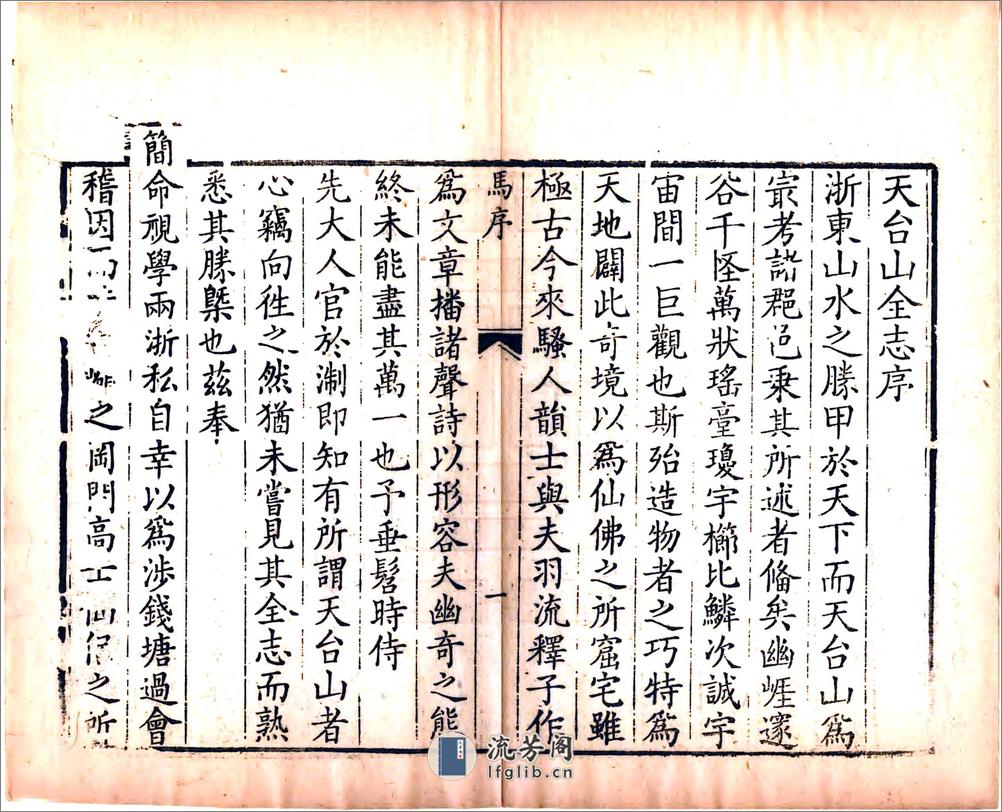 天台山全志序
浙東山水之勝甲於天下而天台山爲
最考諸郡邑乘其所述者偹矣幽崕邃
谷千怪萬狀瑤臺瓊宇櫛比鱗次誠宇
宙間一巨觀也斯殆造物者之巧特爲
天地闢此奇境以爲仙佛之所窟宅雖
極古今來騷人韻士與夫羽流釋子作
馬序
一
爲文章播諸聲詩以形容夫幽奇之能
終未能盡其萬一也予垂髫時侍
先大人官於淛即知有所謂天台山者
心竊向徃之然猶未嘗見其全志而熟
悉其勝槩也茲奉
簡命視學兩浙私自幸以爲渉錢塘過會
稽因之岡門高士仙之所
流芳阁
lfglib.cn